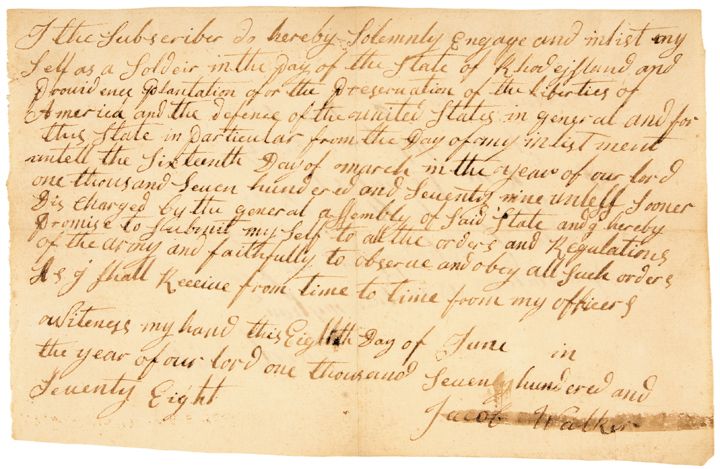 I the Subscriber do hereby Solemnly Engage and inlist my
Self as a Soldeir in the Pay of the State of Rhodeisland and
Providence Plantation for the Preservation of the Liberties of
America and the defence of the united States in general and for
this State in Particular from the Day of my inlistment
untill the Sixteenth Day of march in the year of our lord
one thousand Seven hundered and Seventy nine unless Sooner
Discharged by the general assembly of Said State and j hereby
Promise to Submit my Self to all the orders and Regulations
of the army and faithfully to observe and obey all Such orders
As j Shall Receive from time to time from my officers
Witeness my hand this Eighth Day of June in
the year of our lord one thousand Seven hundered and
Seventy Eight
Jacob Walker